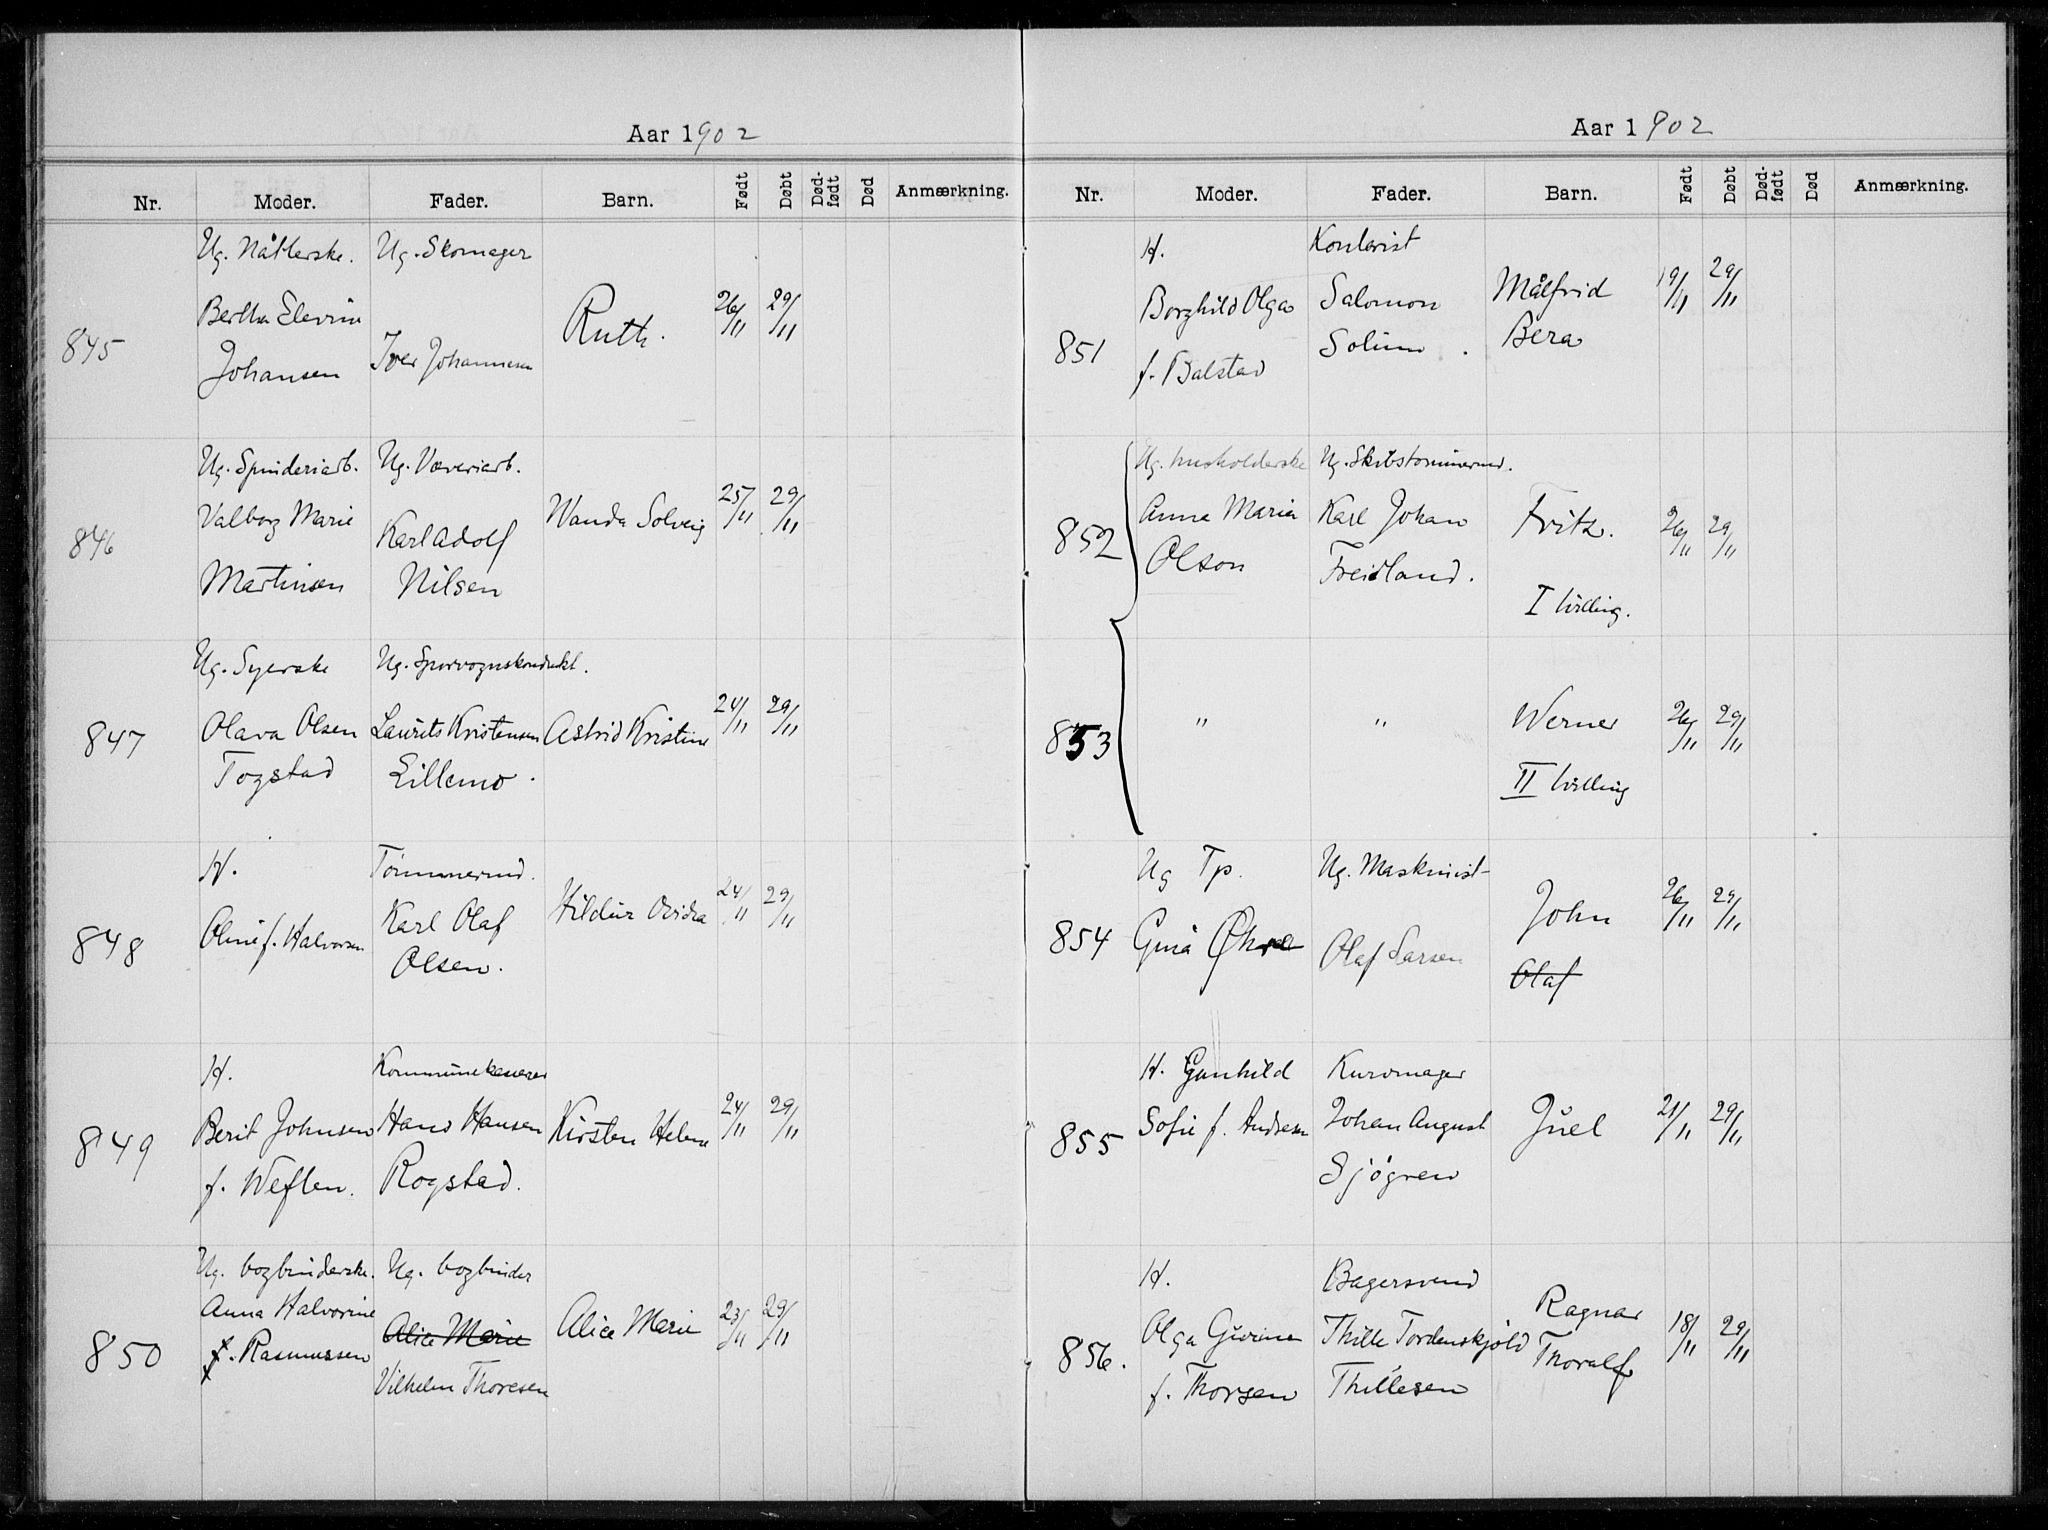 Aar 1902
Nr. Moder. Fader. Barn. Født Døbt Død-født Død Anmærkning.
845
Ug. Nåtlerske.
Bertha Elevine
Johansen
Ug. Skomager
Iver Johannesen
Ruth.
26/11 29/11
846
Ug. Spinderiarb.
Valborg Marie
Martinsen
Ug. Væveriarb.
Karl Adolf
Nilsen
Wanda Solveig
25/11 29/11
847
Ug. Syerske
Olava Olsen
Togstad
Ug. Sporvognskondukt.
Laurits Kristensen
Lillemo.
Astrid Kristine
24/11 29/11
848
H.
Oline f. Halvorsen
Tømmermd.
Karl Olaf
Olsen.
Hildur Ovidia
24/11 29/11
849
H.
Berit Johnsen
f. Weflen.
Kommunekasserer
Hans Hansen
Rogstad.
Kirsten Helene
24/11 29/11
850
Ug. bogbinderske.
Anna Halvorine
f. Rasmussen
Ug. bogbinder
Alice Marie
Vilhelm Thoresen
Alice Marie
23/11 29/11
Aar 1902
Nr. Moder. Fader. Barn. Født Døbt Død-født Død Anmærkning.
851
H.
Borghild Olga
f. Balstad
Kontorist
Salomon
Solum.
Målfrid
Bera
19/11 29/11
852
Ug. husholderske
Anna Maria
Olson
Ug. Skibstømmermd.
Karl Johan
Freidland.
Fritz.
I tvilling.
26/11 29/11
853
" "
Werner
II tvilling
26/11 29/11
854
Ug Tp.
Gina Øhre
Ug. Maskinist
Olaf Larsen
John
Olaf
26/11 29/11
855
H. Gunhild
Sofie f. Andresen
Kurvmager
Johan August
Sjögren
Juel
21/11 29/11
856.
H.
Olga Gurina
f. Thorsen
Bagersvend
Thille Tordenskjold
Thillesen
Ragnar
Thoralf
18/11 29/11